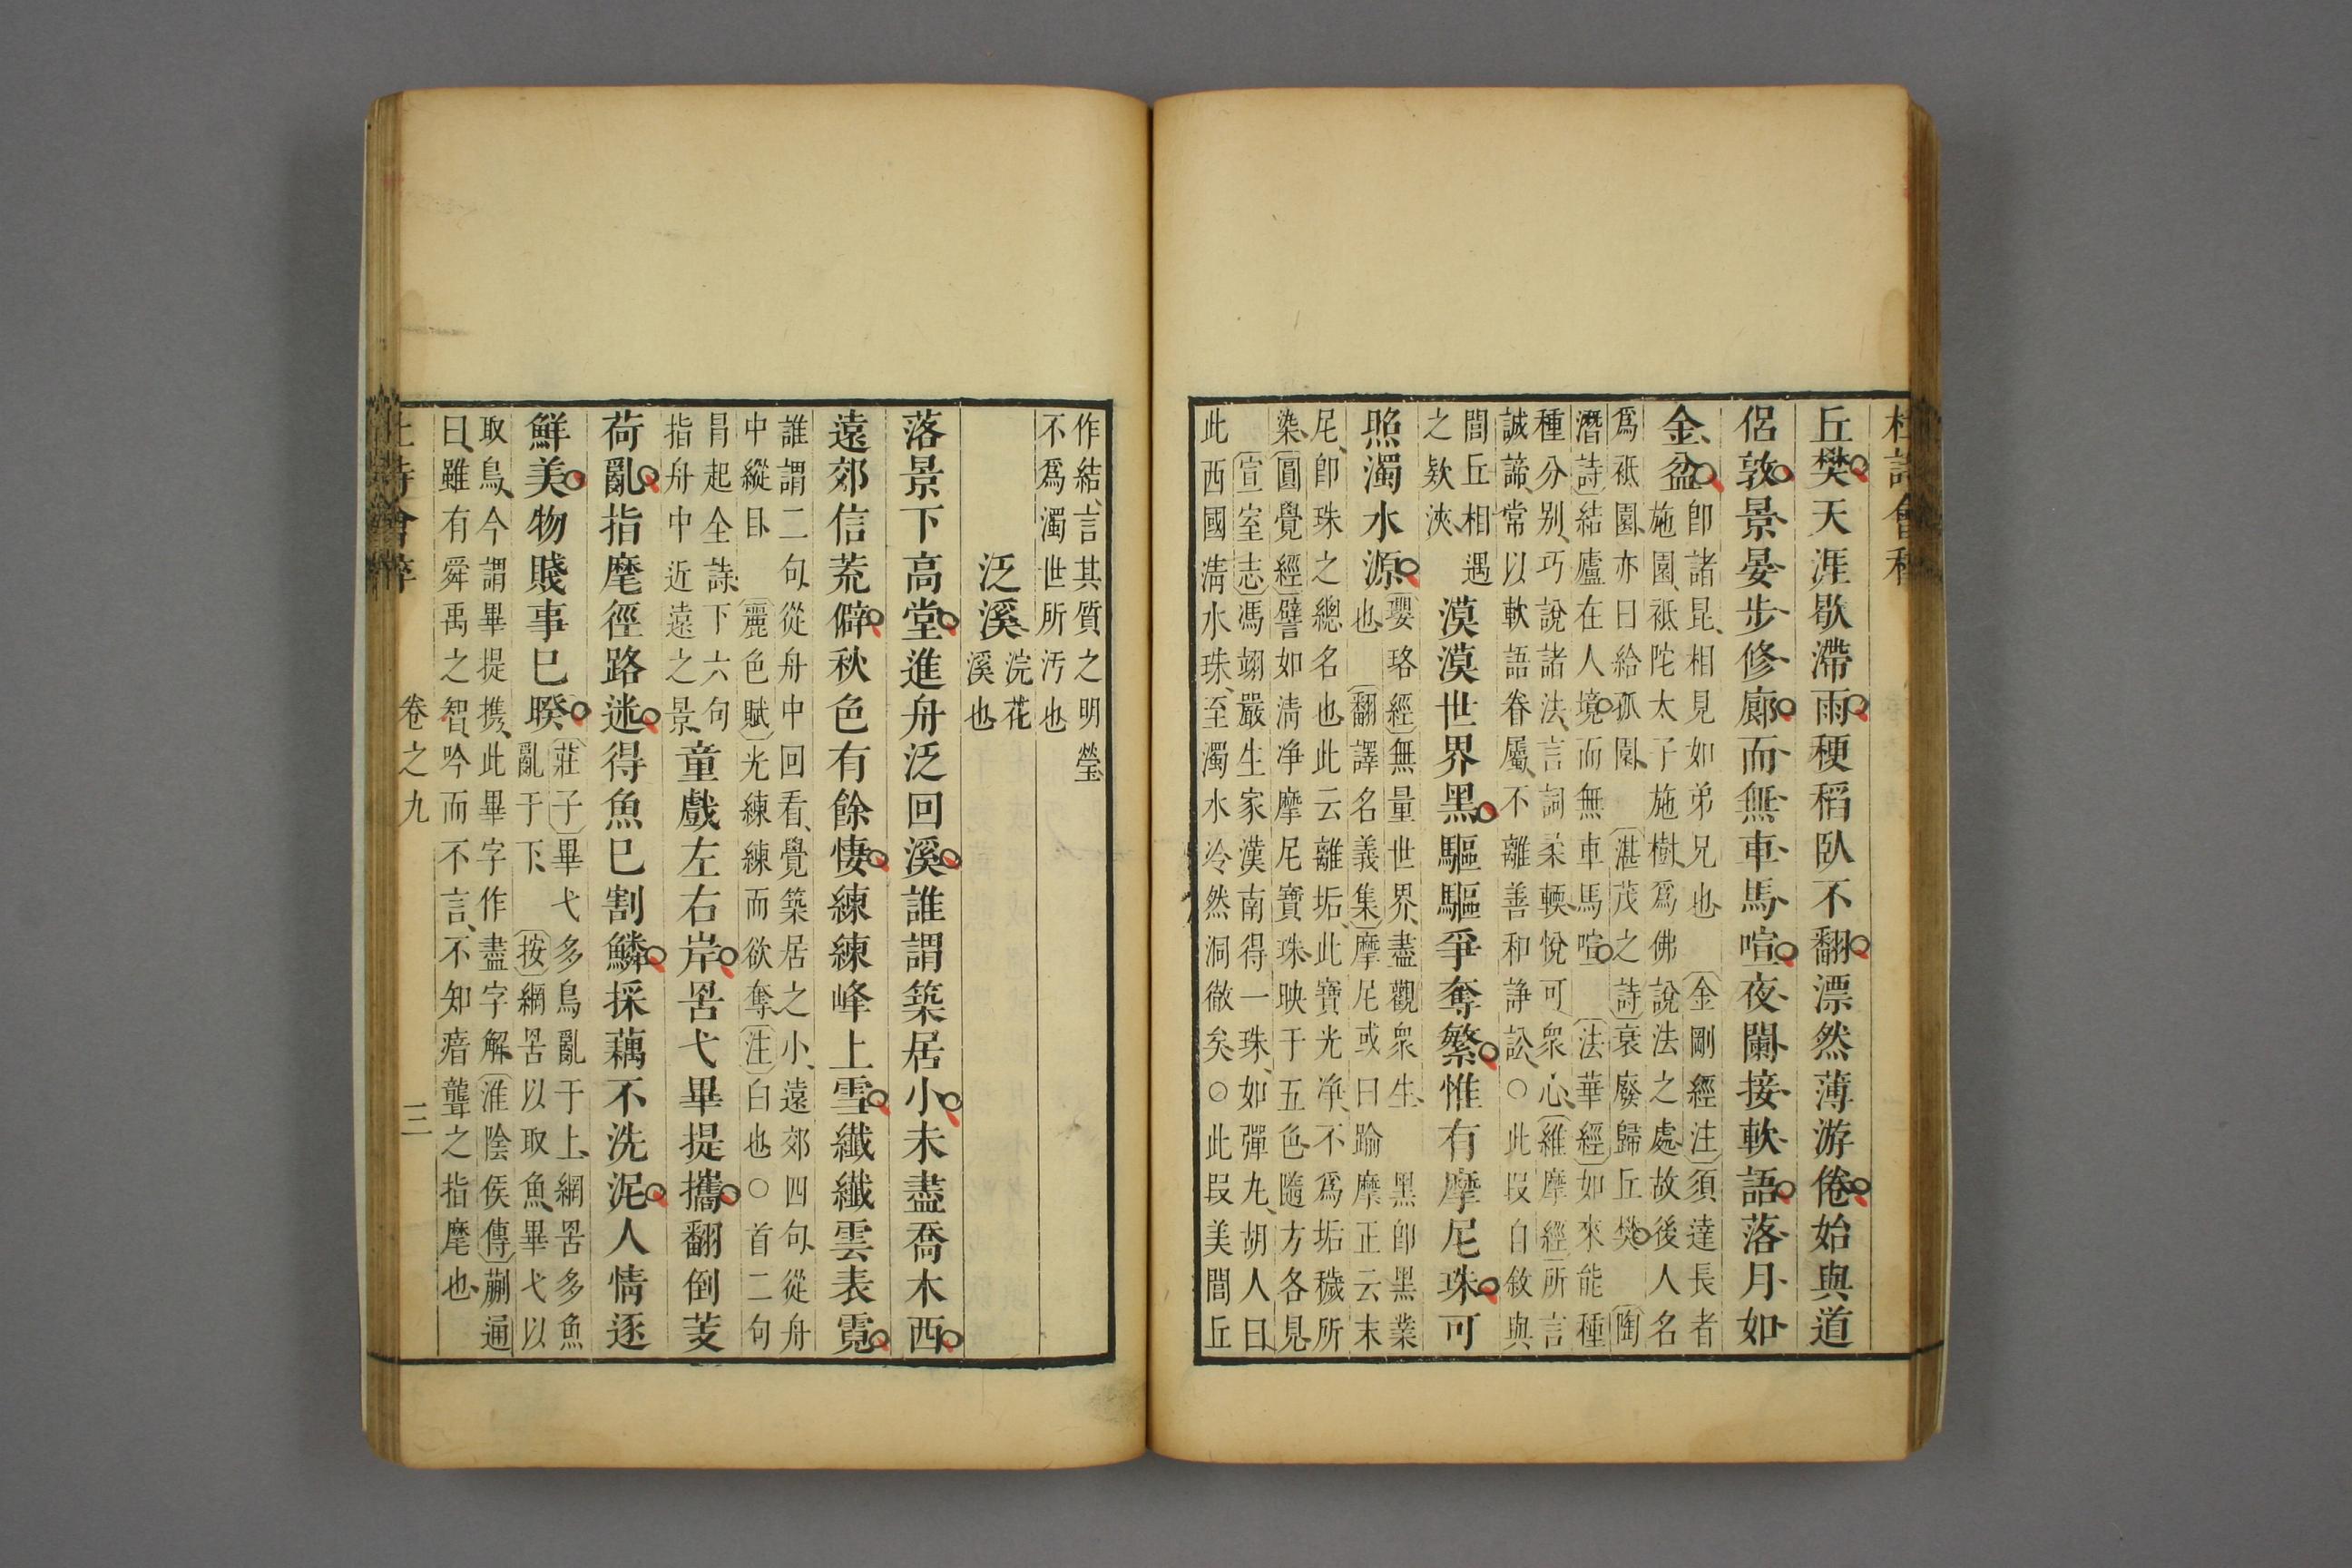 丘樊天涯歇滯雨稉稻臥不翻漂然薄游倦始與道
侶敦景晏步修廊而無車馬喧夜闌接軟語落月如
金盆
卽諸昆相見如弟兄也 金剛經注須達長者
施園祇陀太子施樹爲佛說法之處故後人名
爲祇園亦曰給孤園 湛茂之詩衰廢歸丘樊 陶
潛詩結廬在人境而無車馬喧 法華經如來能種
種分別巧說諸法言詞柔輭悅可衆心維摩經所言
誠諦常以軟語眷屬不離善和諍訟○此段自敘與
閭丘相遇
之欵浹
漠漠世界黑驅驅爭奪繁惟有摩尼珠可
照濁水源
瓔珞經無量世界盡觀衆生 黑卽黑業
也 翻譯名義集摩尼或曰踰摩正云末
尼卽珠之總名也此云離垢此寶光淨不爲垢穢所
染圓覺經譬如淸淨摩尼寶珠映于五色隨方各見
宣室志馮翊嚴生家漢南得一珠如彈丸胡人曰
此西國淸水珠至濁水冷然洞徹矣○此段美閭丘
作結言其質之明瑩
不爲濁世所汚也
泛溪
浣花
溪也
落景下高堂進舟泛回溪誰謂築居小未盡喬木西
遠郊信荒僻秋色有餘悽練練峰上雪纖纖雲表霓
誰謂二句從舟中回看覺築居之小遠郊四句從舟
中縱目 麗色賦光練練而欲奪注白也○首二句
冐起全詩下六句
指舟中近遠之景
童戲左右岸罟弋畢提攜翻倒芰
荷亂指麾徑路迷得魚已割鱗採藕不洗泥人情逐
鮮美物賤事已睽
莊子畢弋多鳥亂于上網罟多魚
亂于下 按網罟以取魚畢弋以
取鳥今謂畢提携此畢字作盡字解 淮陰侯傳蒯通
曰雖有舜禹之智吟而不言不知瘖聾之指麾也
卷之九
三